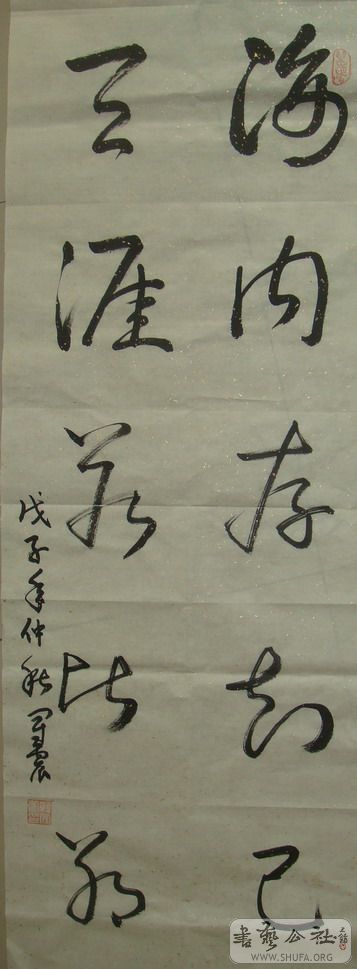 海内存知己
天涯若比邻
戊子年仲秋
書艺公社
WWW.SHUFA.ORG